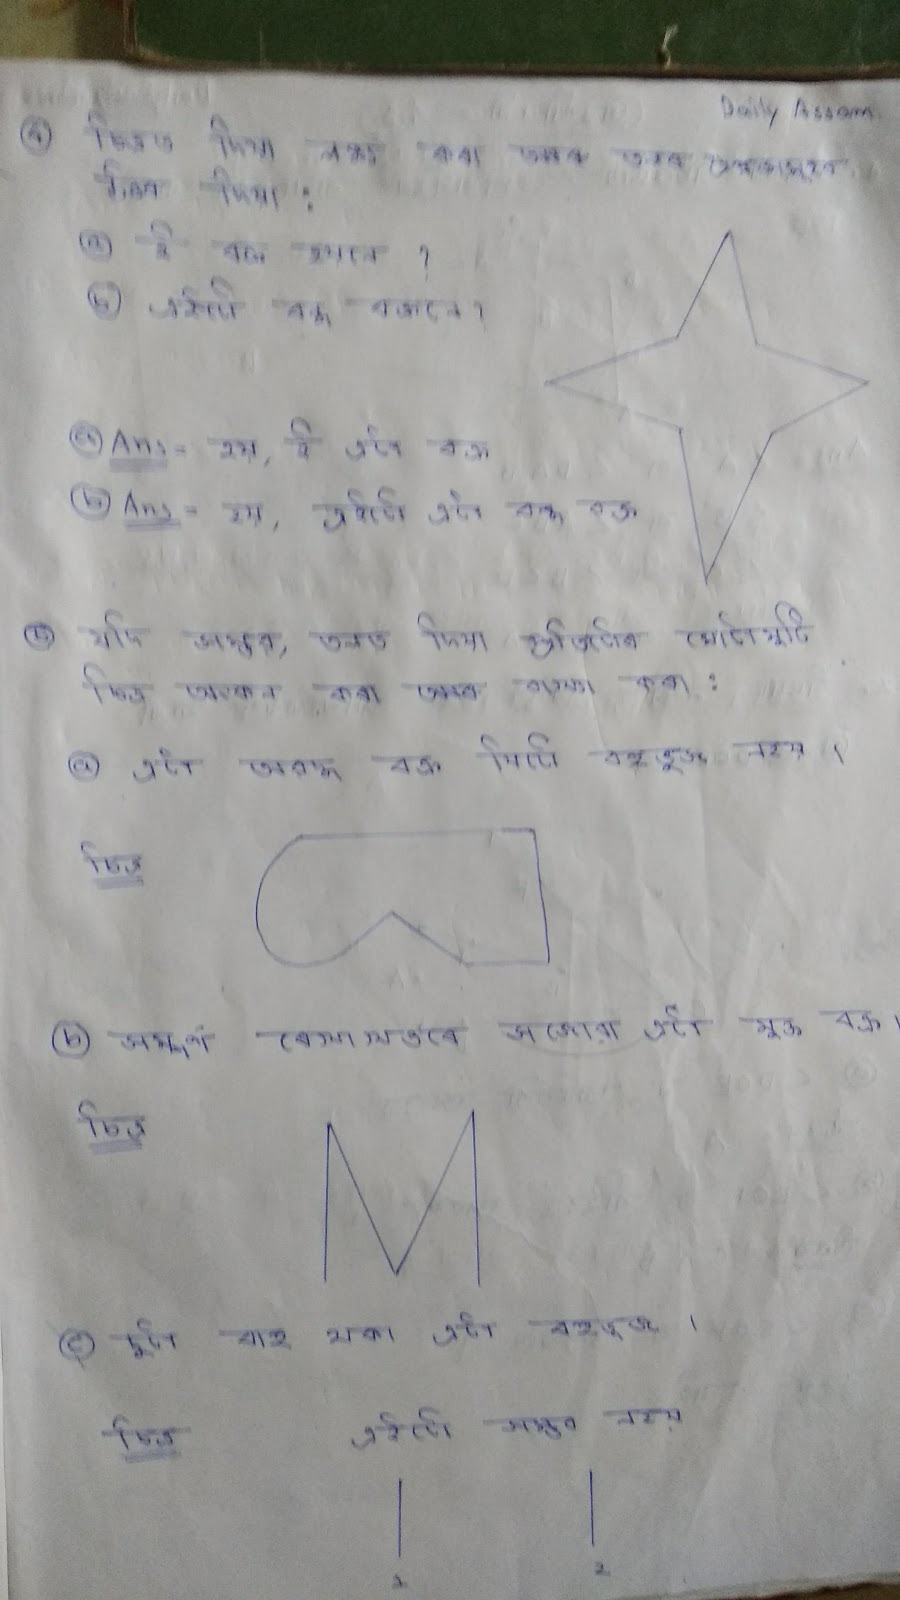 Daily Assam
④ চিত্ৰত দিয়া লক্ষ্য কৰা আৰু তলৰ প্ৰশ্নসমূহৰ
উত্তৰ দিয়া :
ⓐ ই বক্ৰ হয়নে ?
ⓑ এইটো বদ্ধ বক্ৰনে ?
ⓐ Ans = হয়, ই এটা বক্ৰ
ⓑ Ans = হয়, এইটো এটা বদ্ধ বক্ৰ
⑤ যদি সম্ভৱ, তলত দিয়া প্ৰতিটোৰ মোটামুটি
চিত্ৰ অংকন কৰা আৰু ব্যাখ্যা কৰা :
ⓐ এটা আবদ্ধ বক্ৰ যিটো বহুভুজ নহয় ।
চিত্ৰ
ⓑ সম্পূৰ্ণ ৰেখাখণ্ডৰে সজোৱা এটা মুক্ত বক্ৰ ।
চিত্ৰ
ⓒ দুটা বাহু থকা এটা বহুভুজ ।
চিত্ৰ এইটো সম্ভৱ নহয়
1 2